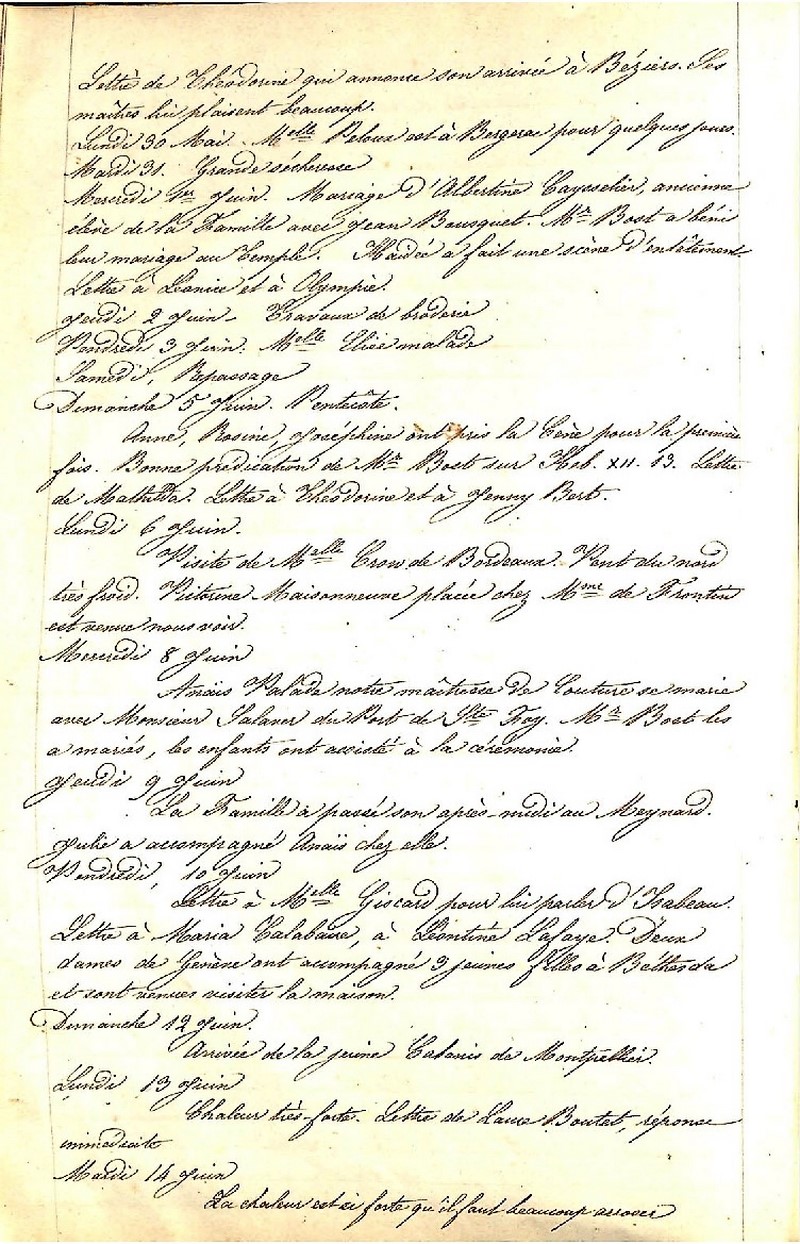 Lettre de Théodorine qui annonce son arrivée à Béziers. Ses
maîtres lui plaisent beaucoup.
Lundi 30 Mai. Melle Peloux est à Bergerac pour quelques jours.
Mardi 31. Grande sécheresse
Mercredi 1er Juin. Mariage d'Albertine Caysselier, ancienne
élève de la Famille avec Jean Bousquet. Mr Bost a béni
leur mariage au Temple. Haidée a fait une scène d'entêtement.
Lettre à Léonice et à Olympie.
Jeudi 2 Juin - Travaux de broderie
Vendredi 3 Juin. Melle Elise malade
Samedi, Repassage
Dimanche 5 Juin. Pentecôte.
Anne, Rosine, Joséphine ont pris la Cène pour la première
fois. Bonne prédication de Mr Bost sur Héb. XII. 13. Lettre
de Mathilda. Lettre à Théodorine et à Jenny Bert.
Lundi 6 Juin.
Visite de Melle Crow de Bordeaux. Vent du nord
très froid. Victorine Maisonneuve placée chez Mme de Frontin
est venue nous voir.
Mercredi 8 Juin
Anaïs Valade notre maîtresse de Couture se marie
avec Monsieur Salaver du Port de Ste Foy. Mr Bost les
a mariés, les enfants ont assisté à la cérémonie.
Jeudi 9 Juin
La Famille a passé son après-midi au Meynard.
Julie a accompagné Anaïs chez elle.
Vendredi, 10 Juin
Lettre à Melle Giscard pour lui parler d'Isabeau.
Lettre à Maria Calabaire, à Léontine Lafaye. Deux
dames de Genève ont accompagné 3 jeunes filles à Béthesda
et sont venues visiter la maison.
Dimanche 12 Juin.
Arrivée de la jeune Catanis de Montpellier.
Lundi 13 Juin
Chaleur très-forte. Lettre de Laure Boutet, réponse
immédiate
Mardi 14 Juin
La chaleur est si forte qu'il faut beaucoup arroser